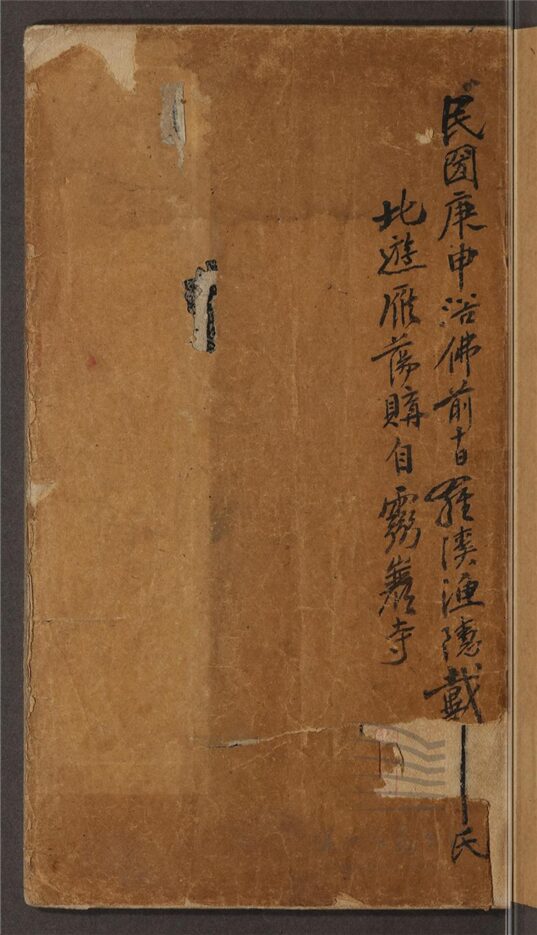 民國庚申浴佛前十日羅溪漁隱戴氏
北遊雁蕩購自靈巖寺